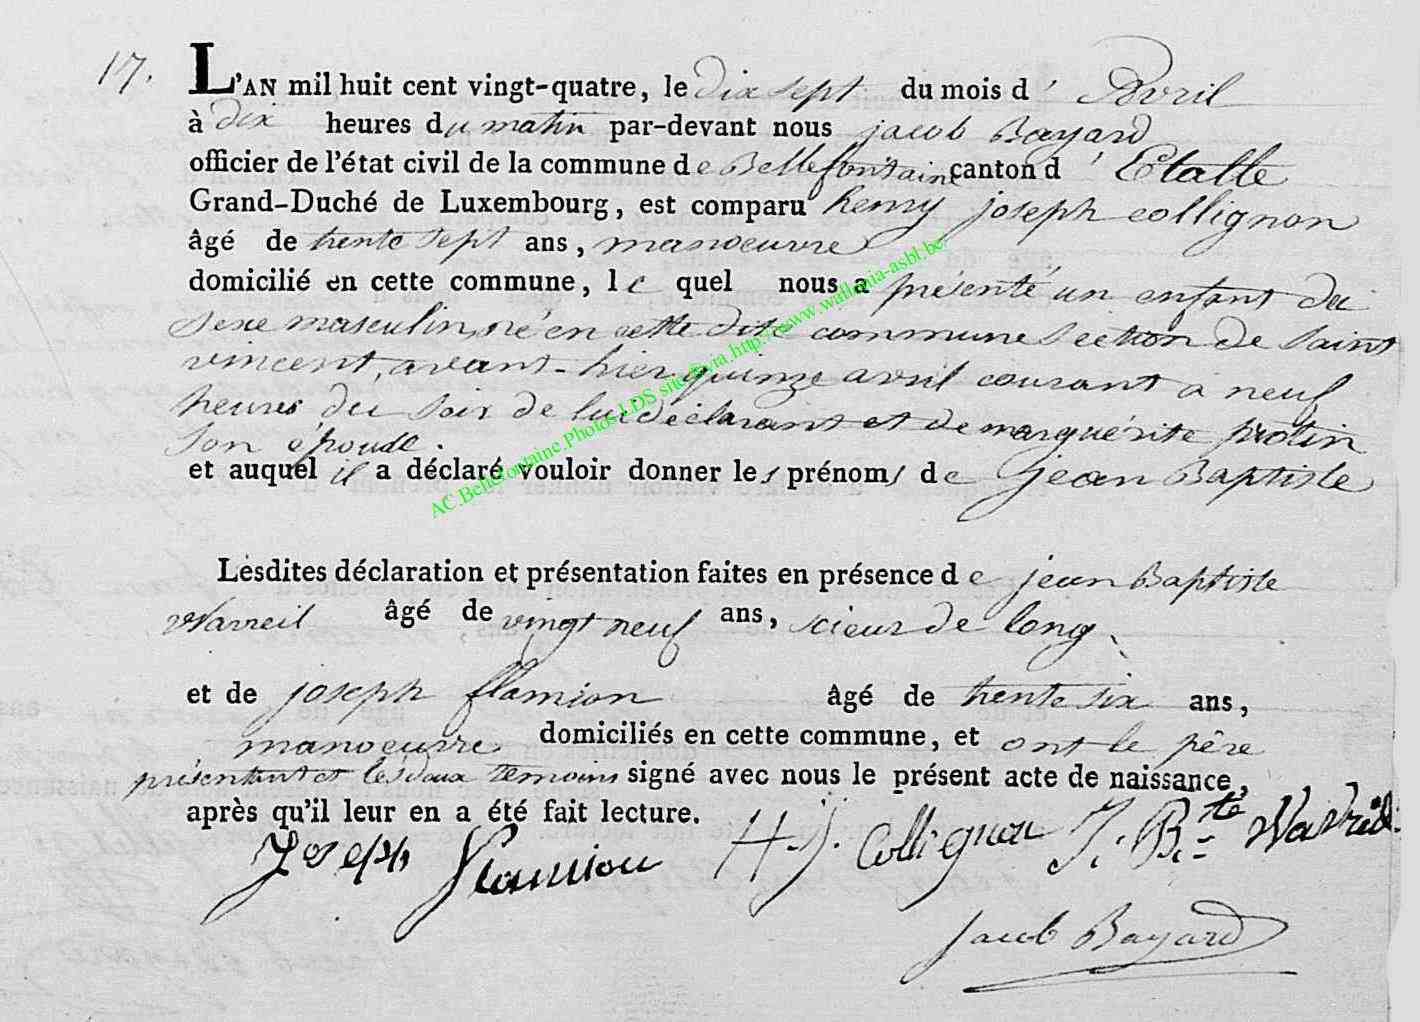 17.
L'AN mil huit cent vingt-quatre, le dix sept du mois d' Avril
à dix heures du matin par-devant nous jacob Bayard
officier de l'état civil de la commune de Bellefontaine canton d' Etalle
Grand-Duché de Luxembourg, est comparu henry joseph collignon
âgé de trente sept ans, manoeuvre
domicilié en cette commune, le quel nous a présenté un enfant du
sexe masculin, né en cette dite commune section de saint
vincent, avant-hier quinze avril courant a neuf
heures du soir de lui déclarant et de marguérite protin
son épouse.
et auquel il a déclaré vouloir donner les prénoms de jean Baptiste
Lesdites déclaration et présentation faites en présence de jean Baptiste
âgé de vingt neuf ans, scieur de long
et de joseph flamion âgé de trente six ans,
manoeuvre domiciliés en cette commune, et ont le père
présentant et les deux temoins signé avec nous le présent acte de naissance,
après qu'il leur en a été fait lecture.
Joseph Flamion H. J. Collignon J. B.te
Jacob Bayard
AC.Bellefontaine.Photos LDS site via http://www.wallonia-asbl.be/